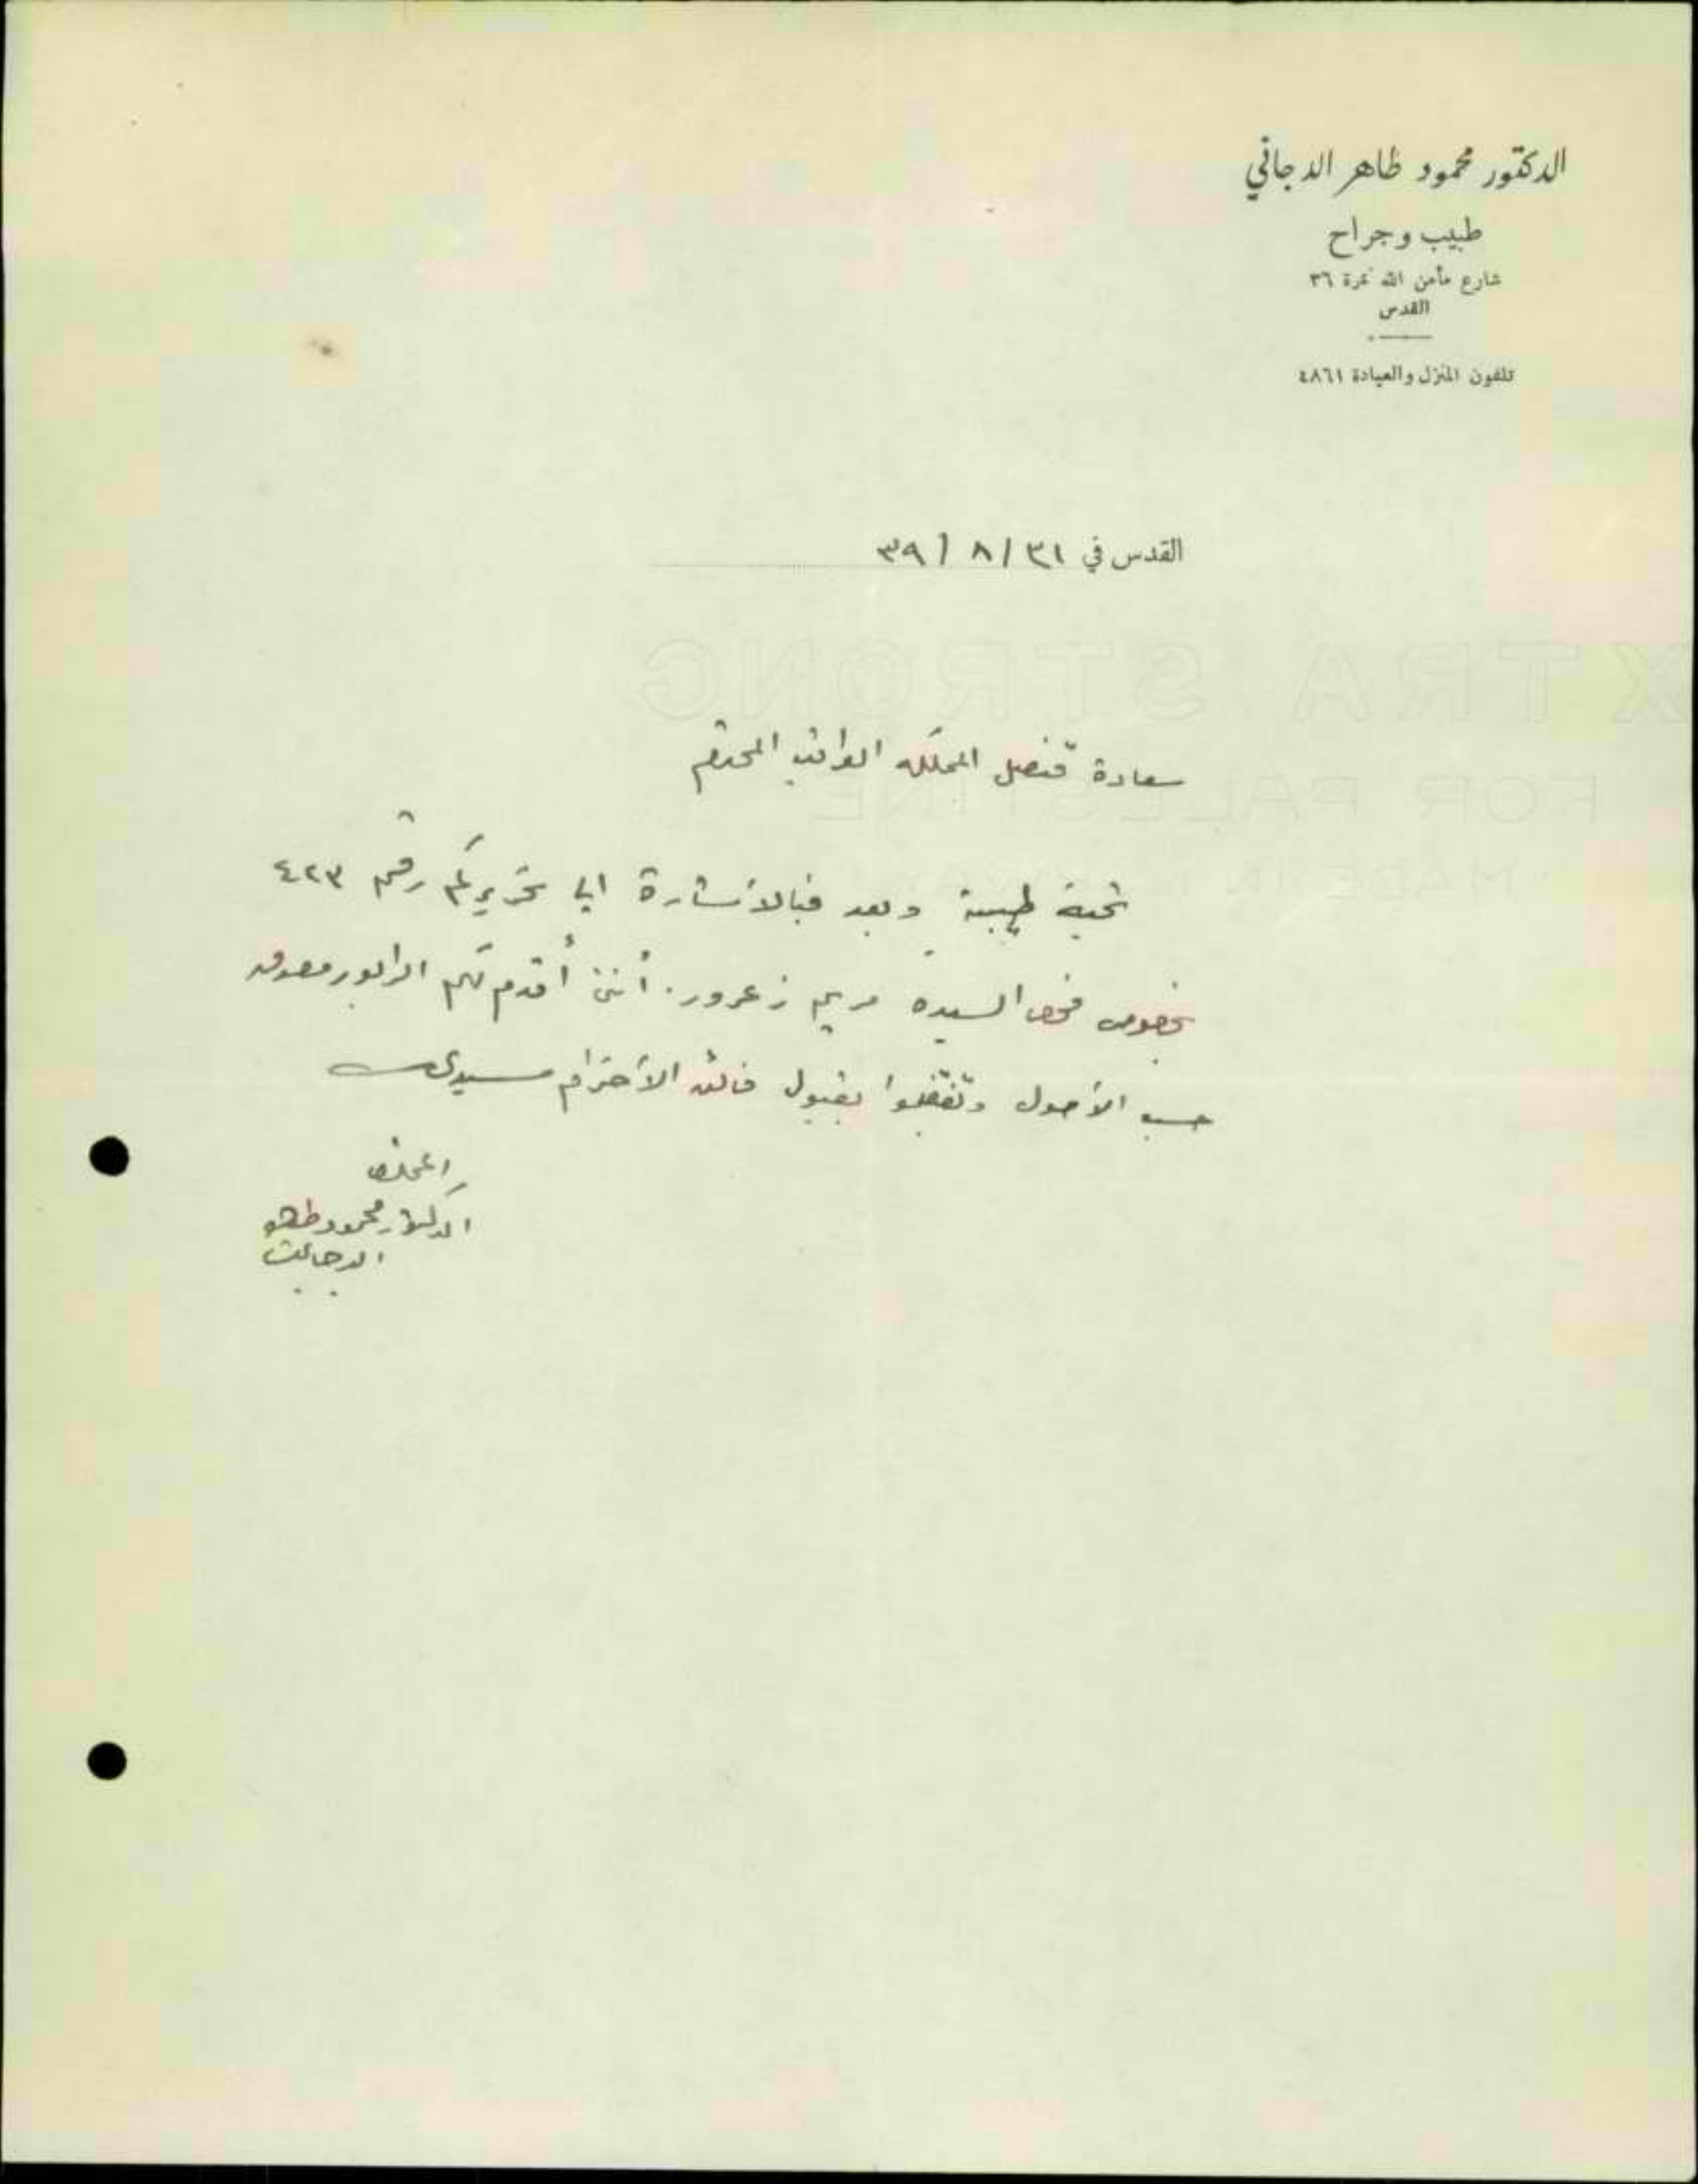 الدكتور محمود طاهر الدجاني
طبيب وجراح
شارع مأمن الله نمرة ٣٦
القدس
تلفون المنزل والعيادة ٤٨٦١
القدس في ٣١ / ٨ / ٣٩
سعادة قنصل المملكه العراقيه المحترم
تحية طيبة وبعد فبالأشارة الى تحريركم رقم ٤٢٣
بخصوص فحص السيده مريم زعرور. أنني أقدم لكم الرابور مصدق
حسب الأصول وتفضلوا بقبول فائق الأحترام سيدي
المخلص
الدكتور محمود طاهر
الدجاني
XTRA STRONG
FOR PALESTINE
MADE IN